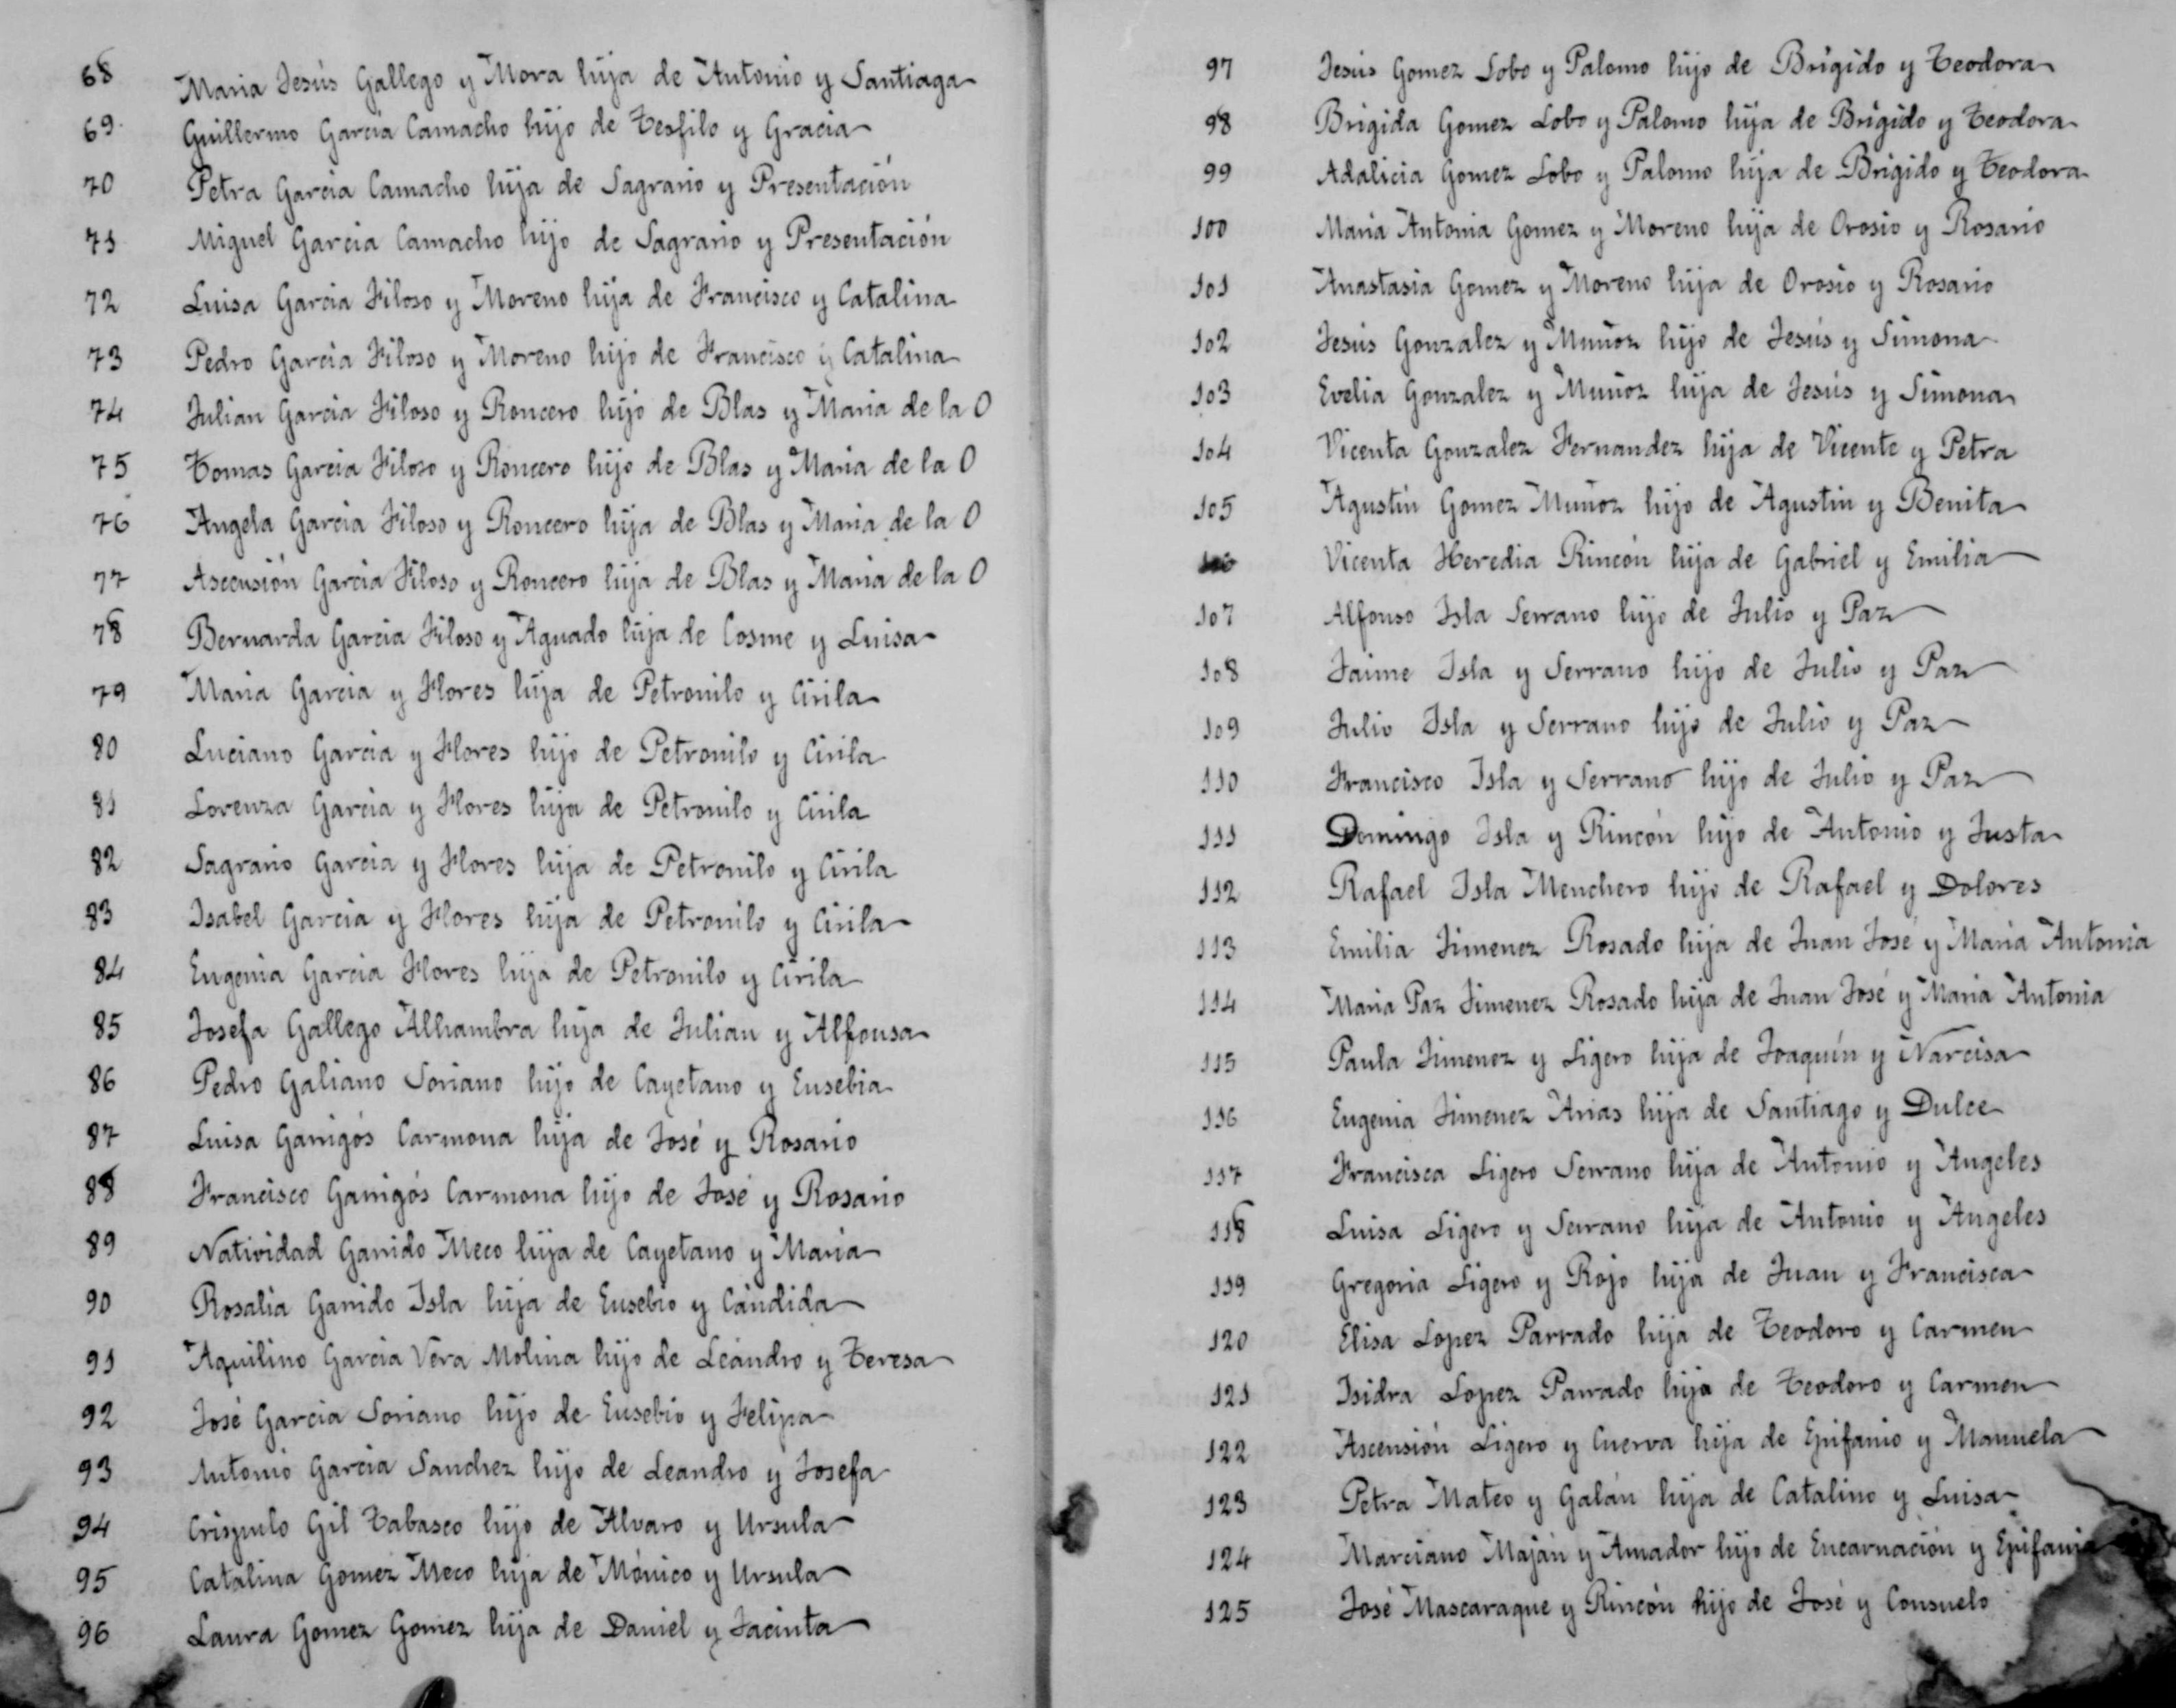 68 Maria Jesús Gallego y Mora hija de Antonio y Santiaga
69 Guillermo Garcia Camacho hijo de Teofilo y Gracia
70 Petra Garcia Camacho hija de Sagrario y Presentación
71 Miguel Garcia Camacho hijo de Sagrario y Presentación
72 Luisa Garcia Filoso y Moreno hija de Francisco y Catalina
73 Pedro Garcia Filoso y Moreno hijo de Francisco y Catalina
74 Julian Garcia Filoso y Roncero hijo de Blas y Maria de la O
75 Tomas Garcia Filoso y Roncero hijo de Blas y Maria de la O
76 Angela Garcia Filoso y Roncero hija de Blas y Maria de la O
77 Ascensión Garcia Filoso y Roncero hija de Blas y Maria de la O
78 Bernarda Garcia Filoso y Aguado hija de Cosme y Luisa
79 Maria Garcia y Flores hija de Petronilo y Cirila
80 Luciano Garcia y Flores hijo de Petronilo y Cirila
81 Lorenza Garcia y Flores hija de Petronilo y Cirila
82 Sagrario Garcia y Flores hija de Petronilo y Cirila
83 Isabel Garcia y Flores hija de Petronilo y Cirila
84 Eugenia Garcia Flores hija de Petronilo y Cirila
85 Josefa Gallego Alhambra hija de Julian y Alfonsa
86 Pedro Galiano Soriano hijo de Cayetano y Eusebia
87 Luisa Garrigós Carmona hija de José y Rosario
88 Francisco Garrigós Carmona hijo de José y Rosario
89 Natividad Garrido Meco hija de Cayetano y Maria
90 Rosalia Garrido Isla hija de Eusebio y Cándida
91 Aquilino Garcia Vera Molina hijo de Leandro y Teresa
92 José Garcia Soriano hijo de Eusebio y Felipa
93 Antonio Garcia Sanchez hijo de Leandro y Josefa
94 Crispulo Gil Tabasco hijo de Alvaro y Ursula
95 Catalina Gomez Meco hija de Mónico y Ursula
96 Laura Gomez Gomez hija de Daniel y Jacinta
97 Jesús Gomez Lobo y Palomo hijo de Brigido y Teodora
98 Brigida Gomez Lobo y Palomo hija de Brigido y Teodora
99 Adalicia Gomez Lobo y Palomo hija de Brigido y Teodora
100 Maria Antonia Gomez y Moreno hija de Orosio y Rosario
101 Anastasia Gomez y Moreno hija de Orosio y Rosario
102 Jesús Gonzalez y Muñoz hijo de Jesús y Simona
103 Evelia Gonzalez y Muñoz hija de Jesús y Simona
104 Vicenta Gonzalez Fernandez hija de Vicente y Petra
105 Agustín Gomez Muñoz hijo de Agustin y Benita
106 Vicenta Heredia Rincón hija de Gabriel y Emilia
107 Alfonso Isla Serrano hijo de Julio y Paz
108 Jaime Isla y Serrano hijo de Julio y Paz
109 Julio Isla y Serrano hijo de Julio y Paz
110 Francisco Isla y Serrano hijo de Julio y Paz
111 Domingo Isla y Rincón hijo de Antonio y Justa
112 Rafael Isla Menchero hijo de Rafael y Dolores
113 Emilia Jimenez Rosado hija de Juan José y Maria Antonia
114 Maria Paz Jimenez Rosado hija de Juan José y Maria Antonia
115 Paula Jimenez y Ligero hija de Joaquín y Narcisa
116 Eugenia Jimenez Arias hija de Santiago y Dulce
117 Francisca Ligero Serrano hija de Antonio y Angeles
118 Luisa Ligero y Serrano hija de Antonio y Angeles
119 Gregoria Ligero y Rojo hija de Juan y Francisca
120 Elisa Lopez Parrado hija de Teodoro y Carmen
121 Isidra Lopez Parrado hija de Teodoro y Carmen
122 Ascensión Ligero y Cuerva hija de Epifanio y Manuela
123 Petra Mateo y Galán hija de Catalino y Luisa
124 Marciano Maján y Amador hijo de Encarnación y Epifania
125 José Mascaraque y Rincón hijo de José y Consuelo